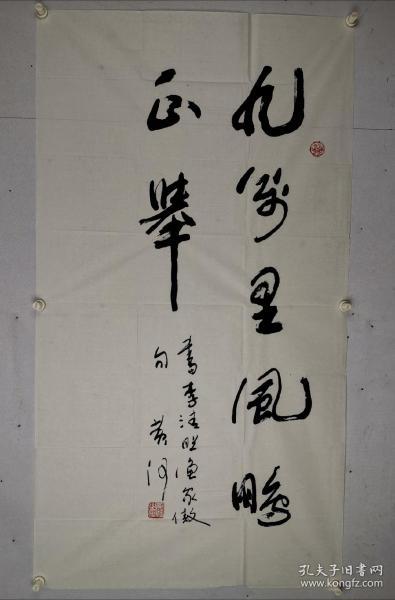 九萬里風鵬
正舉
書李清照漁家傲
句 黄河
孔夫子旧书网
www.kongfz.com